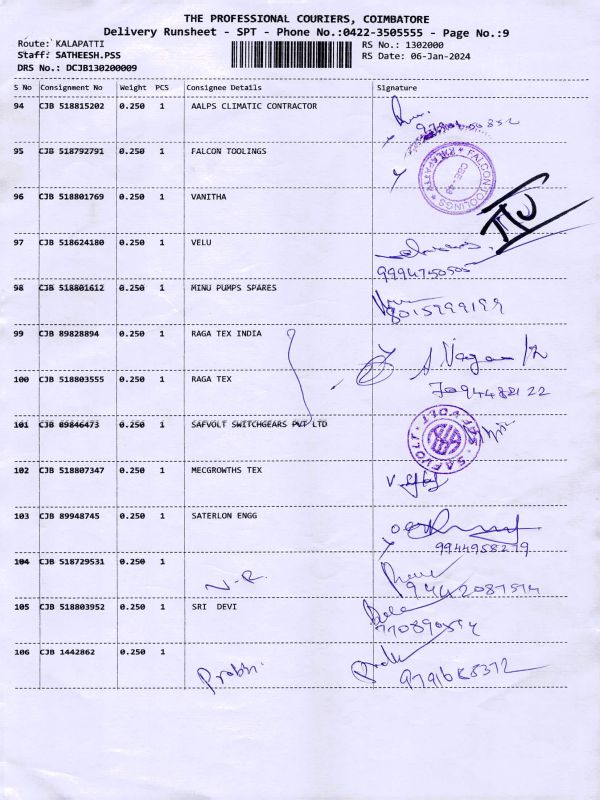 THE PROFESSIONAL COURIERS, COIMBATORE
Delivery Runsheet - SPT - Phone No.:0422-3505555 - Page No.:9
Route: KALAPATTI RS No.: 1302000
Staff: SATHEESH.PSS RS Date: 06-Jan-2024
DRS No.: DCJB130200009
S No Consignment No Weight PCS Consignee Details Signature
94 CJB 518815202 0.250 1 AALPS CLIMATIC CONTRACTOR
95 CJB 518792791 0.250 1 FALCON TOOLINGS
FALCON TOOLINGS * KALAPATTI *
CBE-48
96 CJB 518801769 0.250 1 VANITHA
97 CJB 518624180 0.250 1 VELU
9994750505
98 CJB 518801612 0.250 1 MINU PUMPS SPARES
8015999199
99 CJB 89828894 0.250 1 RAGA TEX INDIA
100 CJB 518803555 0.250 1 RAGA TEX
7094488122
101 CJB 89846473 0.250 1 SAFVOLT SWITCHGEARS PVT LTD
SAFVOLT
102 CJB 518807347 0.250 1 MECGROWTHS TEX
103 CJB 89948745 0.250 1 SATERLON ENGG
9944958279
104 CJB 518729531 0.250 1
N-R.
105 CJB 518803952 0.250 1 SRI DEVI
106 CJB 1442862 0.250 1
Prabhi.